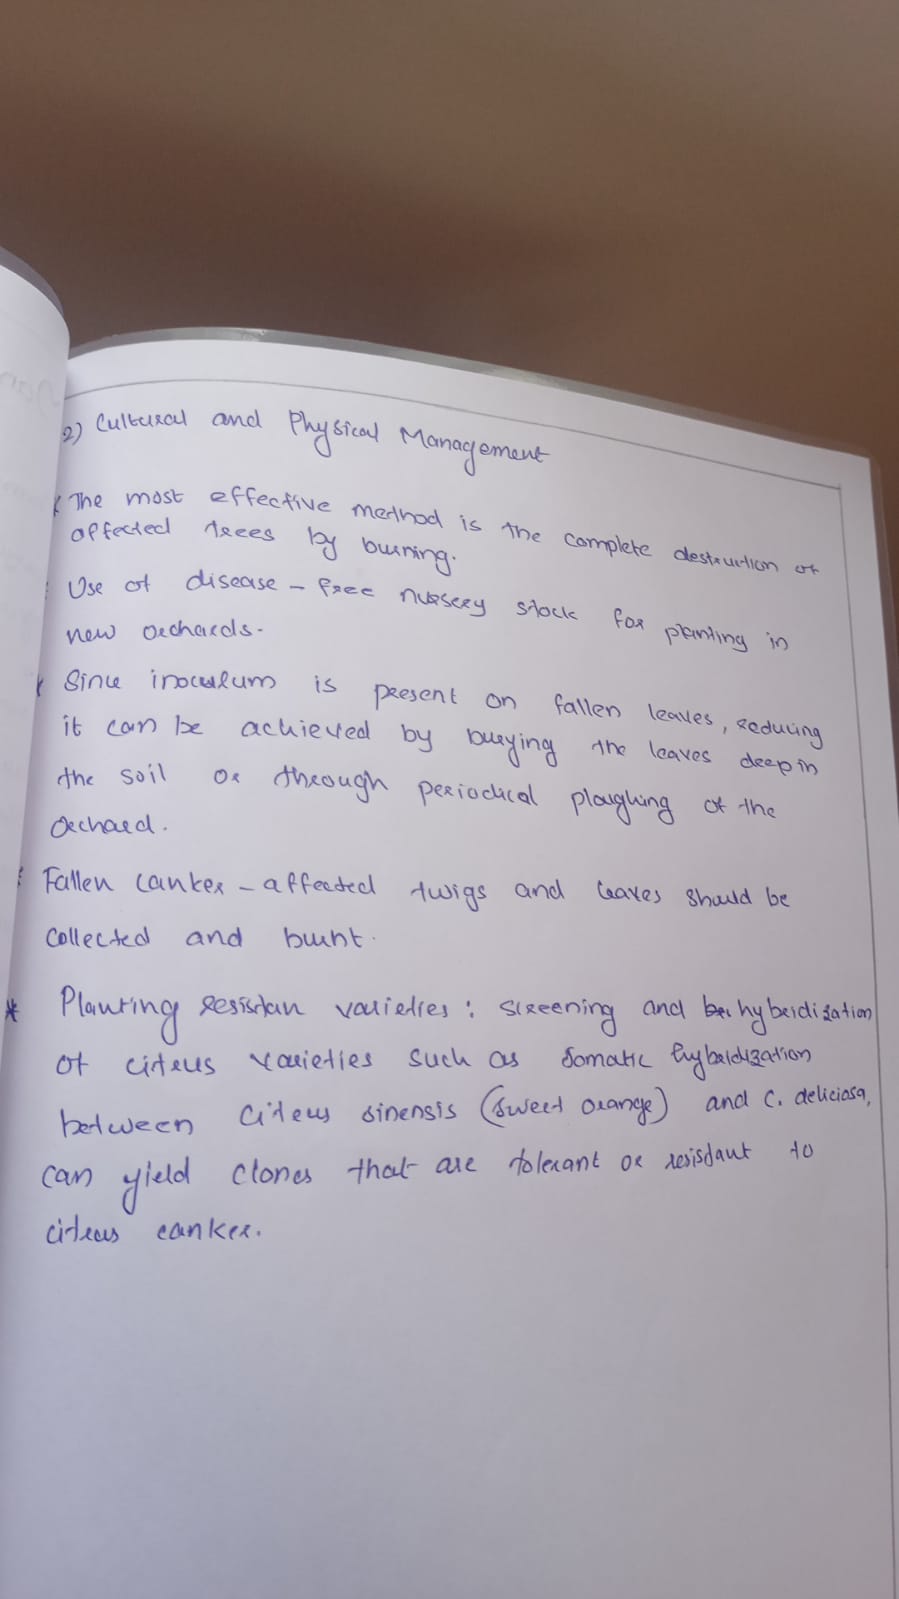 2) Cultural and Physical Management
* The most effective method is the complete destruction of
affected trees by burning.
* Use of disease - free nursery stock for planting in
new orchards.
* Since inoculum is present on fallen leaves, reducing
it can be achieved by burying the leaves deep in
the soil or through periodical ploughing of the
orchard.
* Fallen canker - affected twigs and leaves should be
collected and burnt.
* Planting resistan varieties: screening and hybridization
of citrus varieties such as somatic hybridization
between Citrus sinensis (sweet orange) and C. deliciosa,
can yield clones that are tolerant or resistant to
citrus canker.